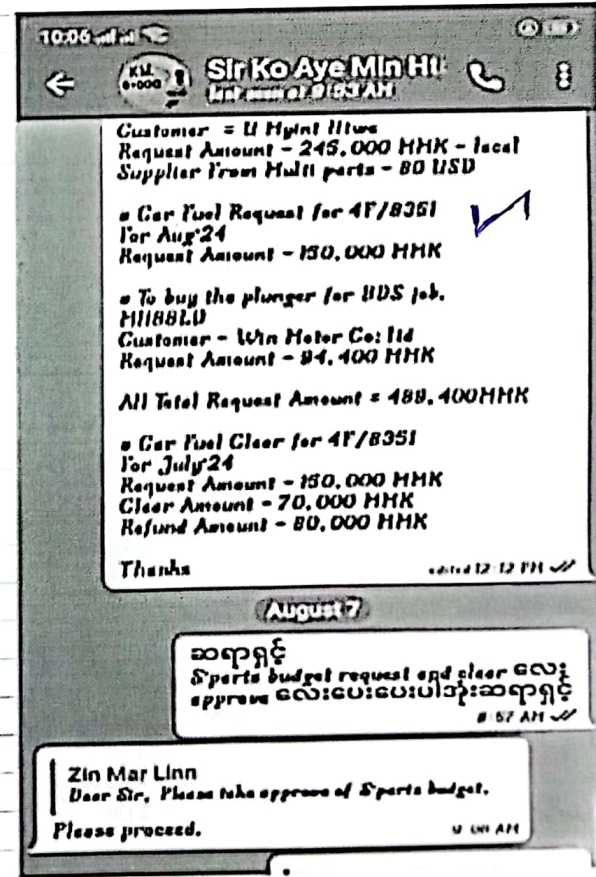 10:06
Sir Ko Aye Min Ht
last seen at 9:53 AM
Customer = U Myint Htwe
Request Amount - 245,000 MMK - local
Supplier From Multi parts - 80 USD
Car Fuel Request for 4F/8351
For Aug'24
Request Amount - 150,000 MMK
To buy the plunger for BDS job.
Customer - Win Motor Co: ltd
Request Amount - 94,400 MMK
All Total Request Amount = 489,400MMK
Car Fuel Clear for 4F/8351
For July'24
Request Amount - 150,000 MMK
Clear Amount - 70,000 MMK
Refund Amount - 80,000 MMK
Thanks
edited 12:12 PM
August 7
ဆရာရှင့်
S'parts budget request and clear လေး
approve လေးပေးပေးပါအုံးဆရာရှင့်
8:57 AM
Zin Mar Linn
Dear Sir, Please take approve of S'parts budget.
Please proceed.
AM